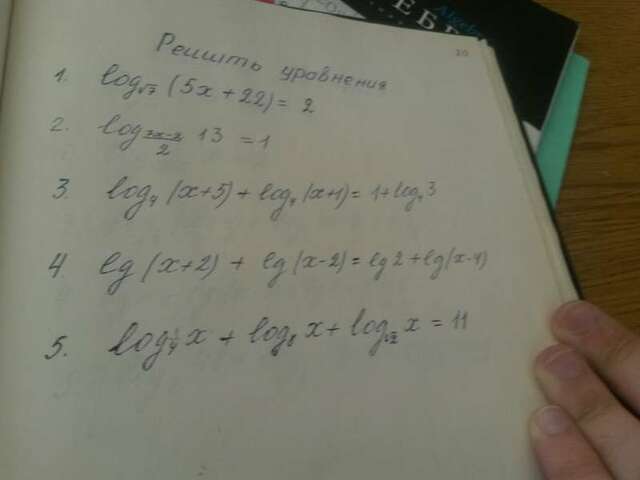 10
Решить уравнения
1. log√7 (5x+22) = 2
2. log(7x-2)/2 13 = 1
3. log4 (x+5) + log4 (x+1) = 1+log4 3
4 lg (x+2) + lg (x-2) = lg 2 + lg(x-4)
5. log4 x + log8 x + log√2 x = 11